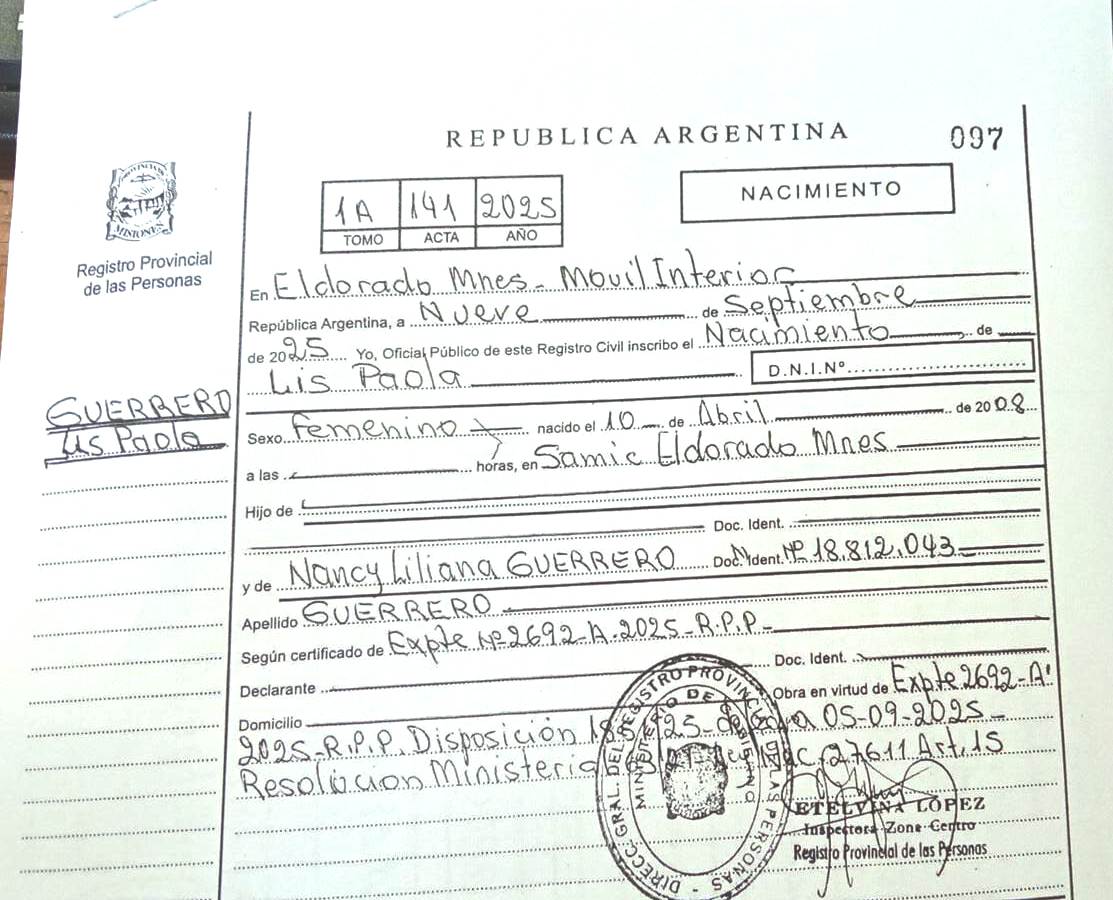 REPUBLICA ARGENTINA
097
PROVINCIA DE
MISIONES
Registro Provincial
de las Personas
1A 141 2025
TOMO ACTA AÑO
NACIMIENTO
En Eldorado Mnes. Movil Interior
República Argentina, a Nueve de Septiembre
de 2025 Yo, Oficial Público de este Registro Civil inscribo el Nacimiento de
Lis Paola D.N.I.Nº
GUERRERO
Lis Paola
Sexo Femenino nacido el 10 de Abril de 2008
a las horas, en Samic Eldorado Mnes
Hijo de
Doc. Ident.
y de Nancy Liliana GUERRERO Doc. Ident. Nº 18.812.043
Apellido GUERRERO
Según certificado de Expte Nº 2692-A-2025-R.P.P-
Declarante Doc. Ident.
Domicilio Obra en virtud de Expte 2692-A'
2025-R.P.P. Disposición 05-09-2025-
Resolución Ministerial 27611 Art. 15
DIRECC. GRAL. DEL REGISTRO PROVINCIAL DE LAS PERSONAS
MINISTERIO DE GOBIERNO
ETELVINA LÓPEZ
Inspectora Zona Centro
Registro Provincial de las Personas